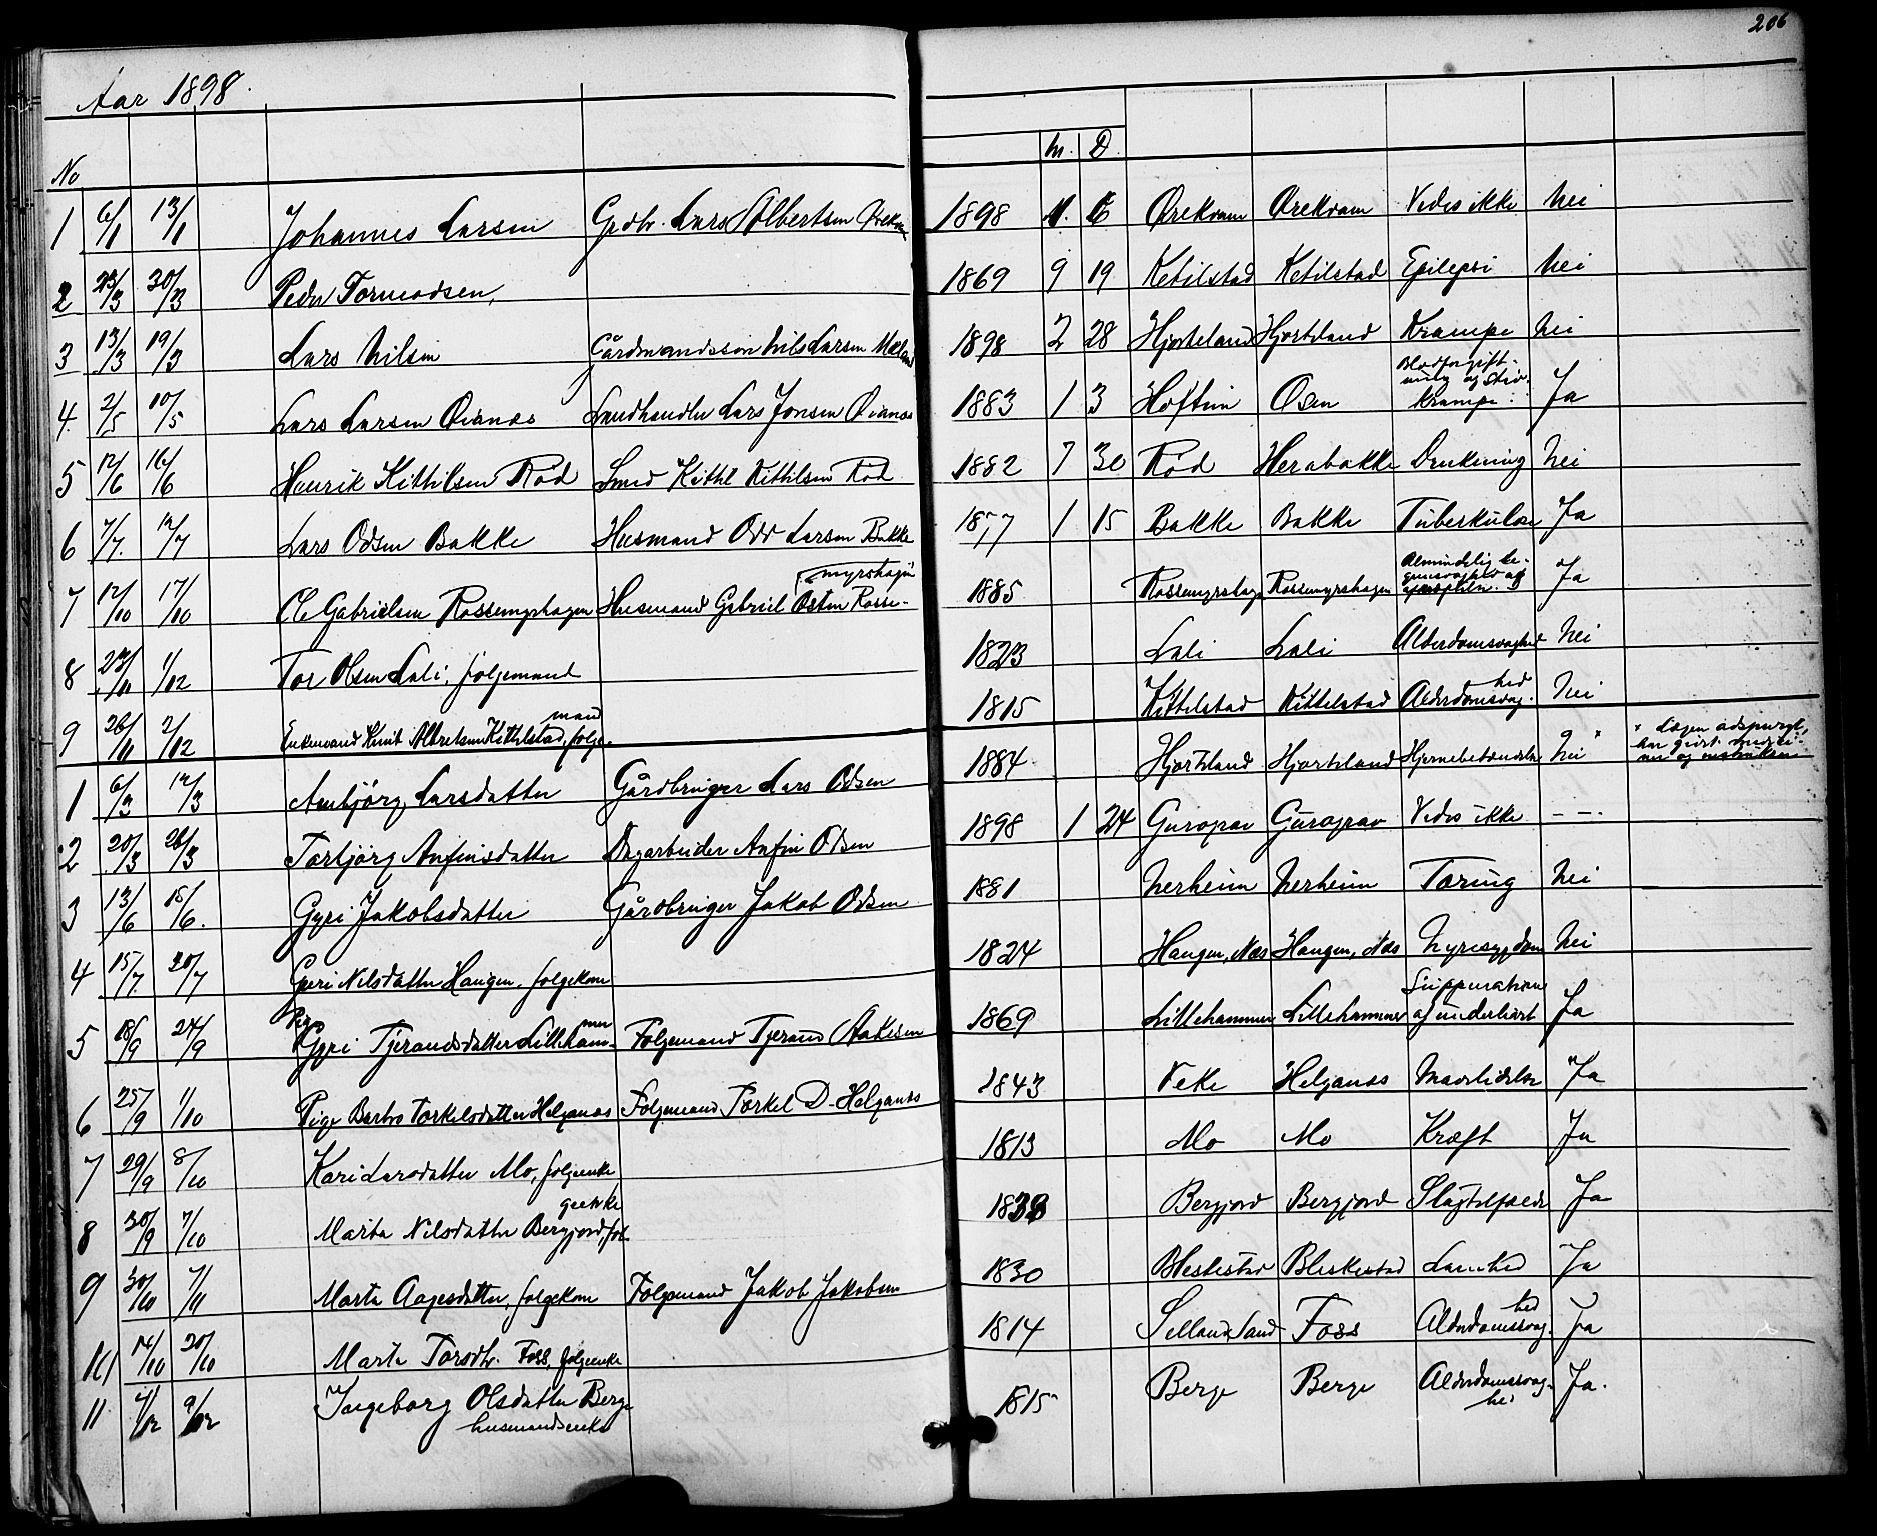 206
Aar 1898.
No
M. D.
1 6/1 13/1 Johannes Larsen Grdbr. Lars Albertsen Ørekvam 1898 Ørekvam Ørekvam Vides ikke Nei
2 23/3 30/3 Peder Tormodsen, 1869 9 19 Ketilstad Ketilstad Epilepsi Nei
3 13/3 19/3 Lars Nilsen Gårdmandssøn Nils Larsen 1898 2 28 Hjorteland Hjorteland Krampe Nei
4 2/5 10/5 Lars Larsen Øianæs Landhandler Lars Jonsen Øianæs 1883 1 3 Osen Blodforgift-
ning og
krampe Ja
5 12/6 16/6 Henrik Kittilsen Rød Smed Kittil Kittilsen Rød 1882 7 30 Rød Herabakke Drukning Nei
6 7/7. 12/7 Lars Odsen Bakke Husmand Odd Larsen Bakke 1877 1 15 Bakke Bakke Tuberkulose Ja
myrshagen
7 12/10 17/10 Ole Gabrielsen Rossemyrshagen Husmand Gabriel Osten Rosse- 1885 Rossemyrshagen Rossemyrshagen Almindelig Ja
8 23/11 1/12 Tor Olsen Lali, følgemand 1823 Lali Lali Alderdomssvaghed Nei
mand hed
9 26/11 2/12 Enkemand Knut Albretsen Kittilstad, følge- 1815 Kittelstad Kittelstad Alderdomssvag- Nei
1 6/3 12/3 Ambjørg Larsdatter Gårdbruger Lars Odsen 1884 Hjorteland Hjorteland Hjernebetændelse Nei * * Lægen adspurgt,
har givet medici-
ner og
2 20/3 26/3 Torbjørg Anfinsdatter Dagarbeider Anfin Odsen 1898 1 24 Guropav Guropav Vides ikke - -.
3 13/6 18/6. Gyri Jakobsdatter Gårdbruger Jakob Odsen 1881 Nerheim Nerheim Tæring Nei
4 15/7 20/7 Gyri Nilsdatter Haugen, følgekone 1824 Haugen, Næs Haugen, Næs Nyresygdom Nei
mer Suppuration
5 18/9 24/9 Gyri Tjerandsdatter Lilleham- Følgemand Tjerand Aakesen 1869 Lillehammer Lillehammer af underlivet Ja
6 25/9 1/10 Pige Barbro Torkelsdatter Helganæs Følgemand Torkel D. Helganæs 1843 Veke Helganæs Mavelidelse Ja
7 29/9 8/10 Kari Larsdatter Mo, følgeenke 1813 Mo Mo Kræft Ja
geenke
8 30/9 7/10 Marta Nilsdatter Bergjord, føl- 1838 Bergjord Bergjord Slagtilfælde Ja
9 30/10 7/11 Marta Aagesdatter, følgekone Følgemand Jakob Jakobsen 1830 Bleskestad Bleskestad Lamhed Ja
hed
10 14/10 20/10 Marta Torsdtr. Foss, følgeenke 1814 Selland, Sand Foss Alderdomssvag- Ja
11 9/12 Ingeborg Olsdatter Berge 1815 Berge Berge Alderdomssvag- Ja.
husmandsenke hed